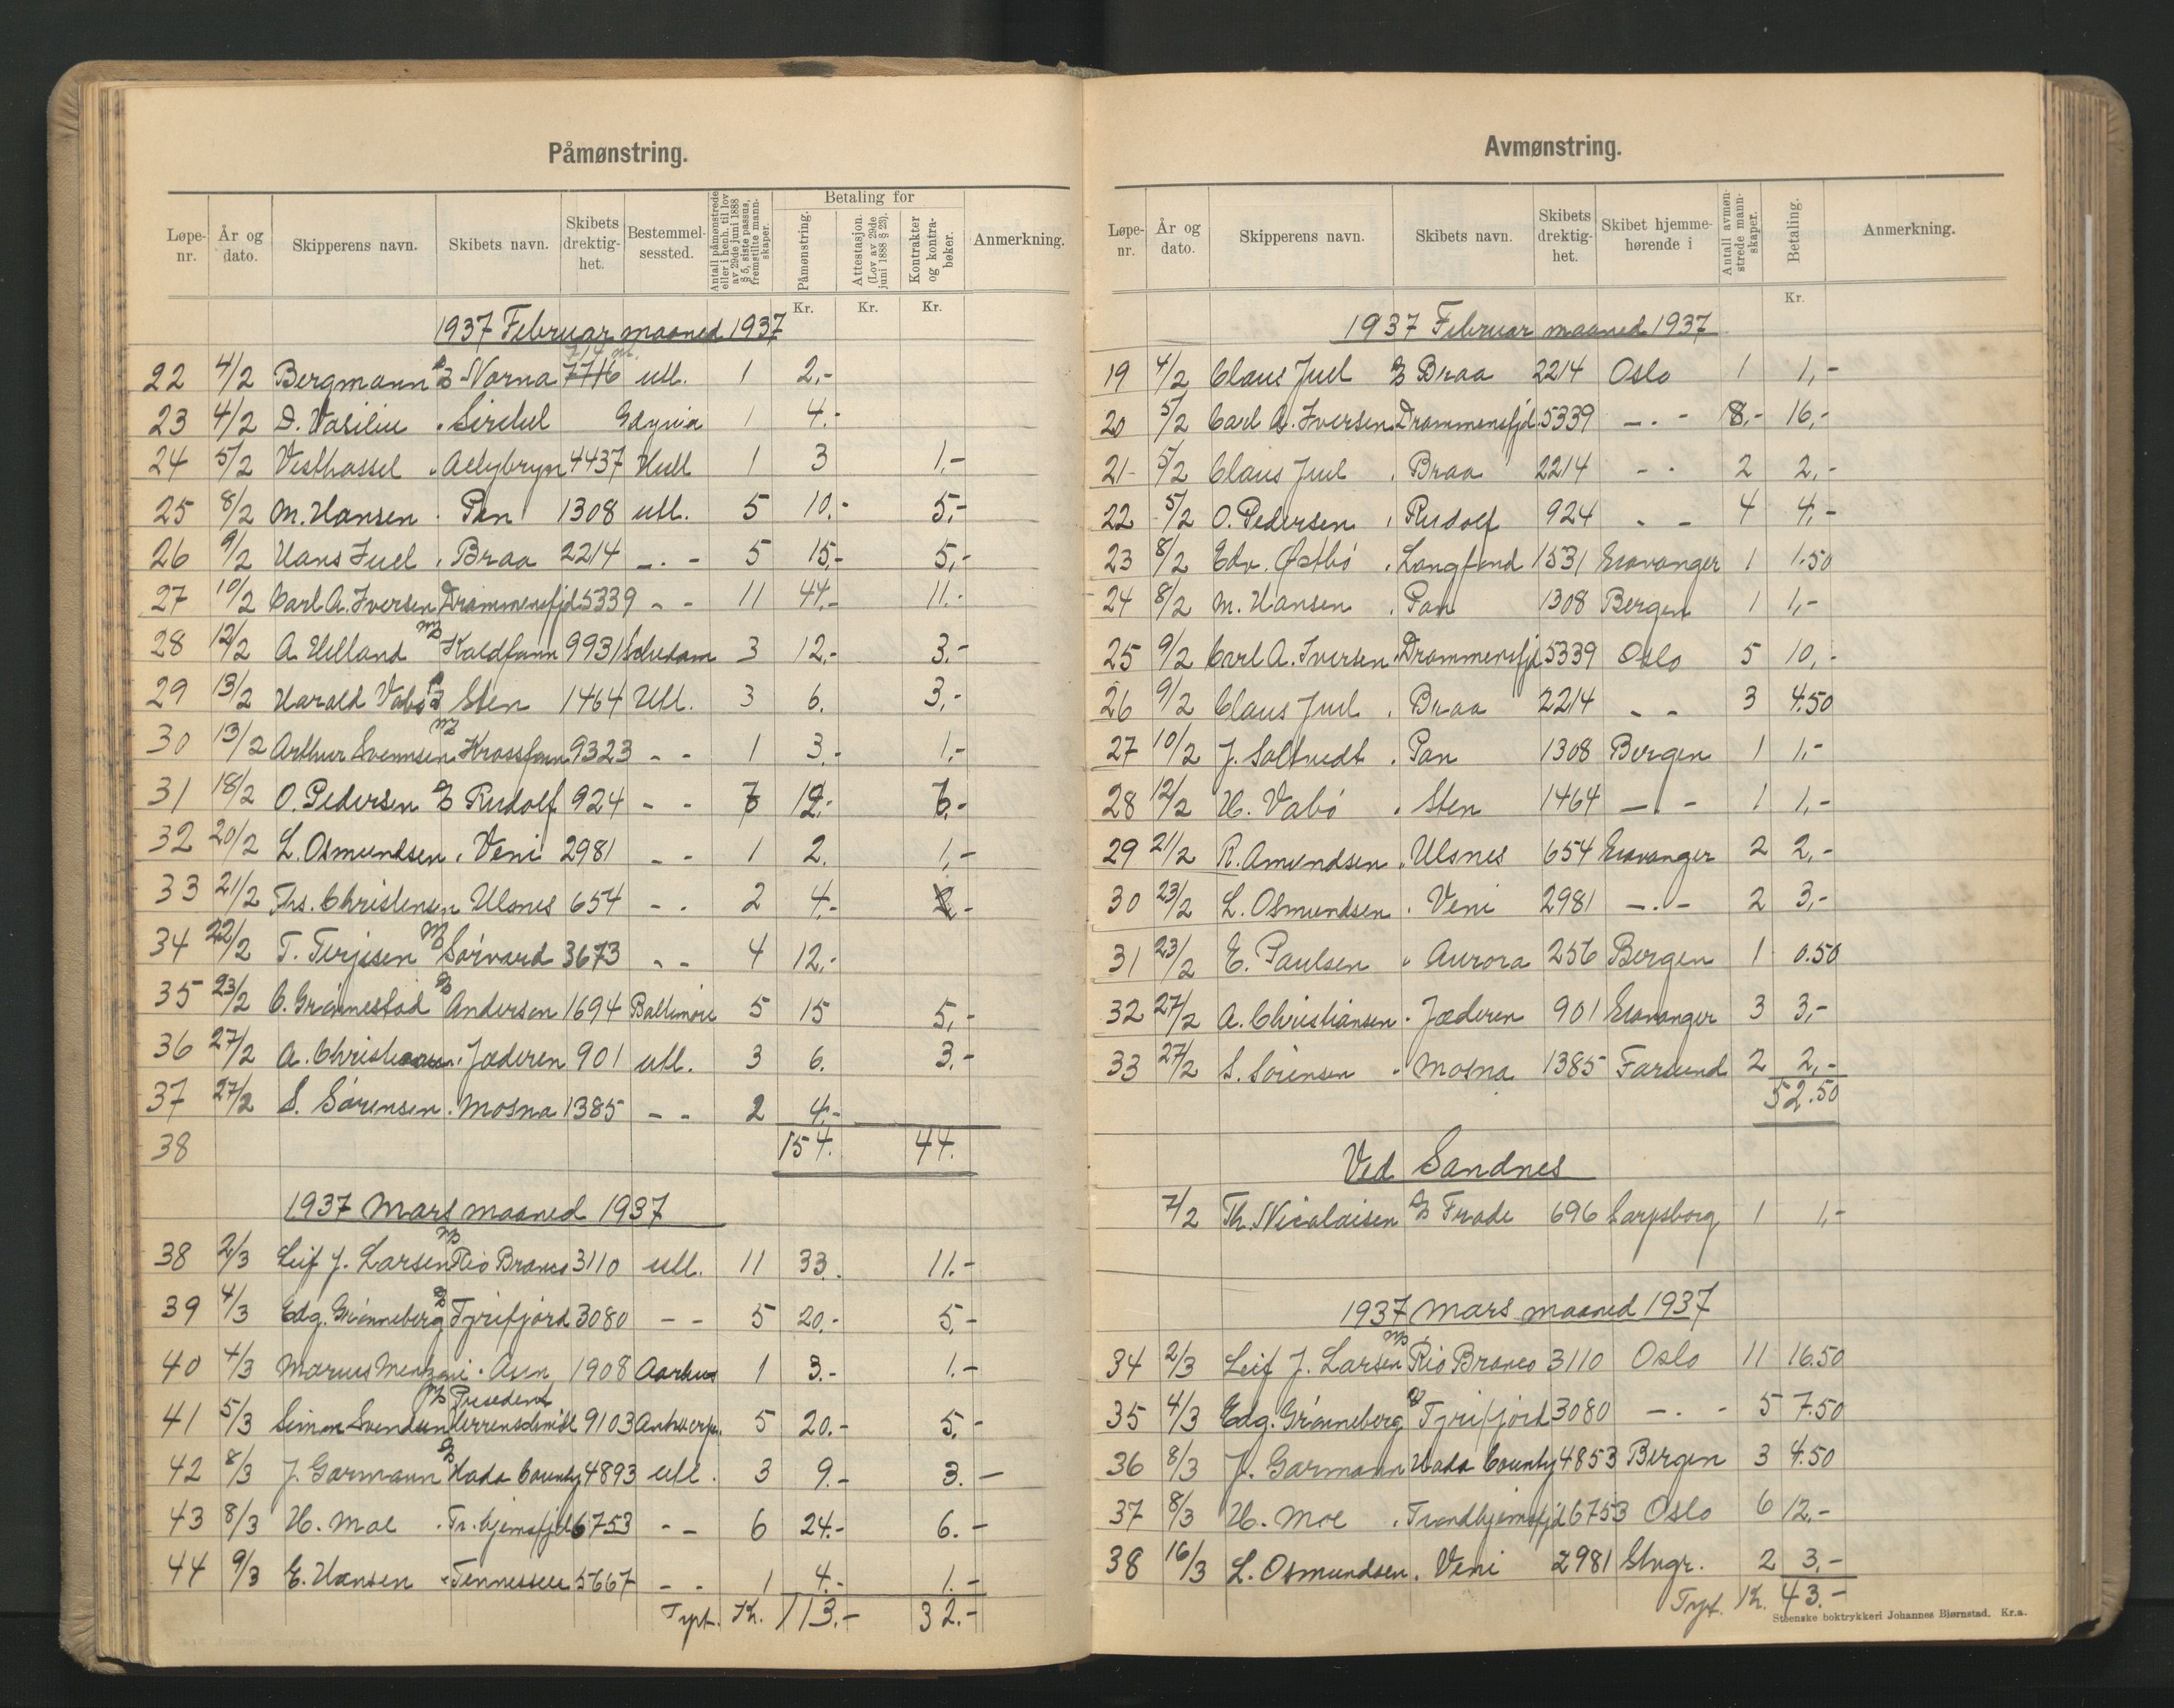 Påmønstring.
Løpe-nr. År og dato. Skipperens navn. Skibets navn. Skibets drektig-het. Bestemmel-sessted. Antall påmønstrede eller i henh. til lov av 29de juni 1888 § 5, siste passus, fremstilte mann-skaper. Betaling for Påmønstring. Attestasjon. (Lov av 29de juni 1888 § 23). Kontrakter og kontra-bøker. Anmerkning.
Kr. Kr. Kr.
1937 Februar maaned 1937
22 4/2 Bergmann Norna utl. 1 2,-
23 4/2 D. Vasiliu Sirehel Gdynia 1 4.-
24 5/2 Vesthassel Aelybryn 4437 Hull 1 3 1,-
25 8/2 M. Hansen Pan 1308 utl. 5 10.- 5,-
26 9/2 Hans Juel Braa 2214 -.- 5 15,- 5,-
27 10/2 Carl A. Iversen Drammensfjd 5339 - - 11 44.- 11.-
28 12/2 A Helland Kaldfonn 9931 Schiedam 3 12,- 3.-
29 13/2 Harald Vabø Sten 1464 Utl. 3 6. 3,-
30 13/2 Arthur Svennsen Krossfonn 9323 - - 1 3.- 1.-
31 18/2 O. Pedersen Rudolf 924 - -
32 20/2 L. Osmundsen Veni 2981 - - 1 2. 1,-
33 21/2 Ths. Christensen Ulsnes 654 - - 2 4.-
34 22/2 T. Terjesen Sørvard 3673 - - 4 12,-
35 23/2 C. Grønnestad Anderson 1694 Baltimore 5 15 5,-
36 27/2 A. Christiansen Jæderen 901 utl. 3 6. 3.-
37 27/2 S. Sørensen Mosna 1385 - - 2 4.-
38 154. 44.
1937 Mars maaned 1937
38 2/3 Leif J. Larsen Rio Branco 3110 utl. 11 33. 11.-
39 4/3 Edg. Grønneberg Tyrifjord 3080 - - 5 20.- 5,-
40 4/3 Marius Aun 1908 Aarhus 1 3.- 1.-
Presedent
41 5/3 Simon Svendsen Herrenschmidt 9103 Antwerp. 5 20.- 5.-
42 8/3 J. Garmann Hada County 4893 utl. 3 9.- 3.-
43 8/3 H. Moe Tr.hjemsfjd 6753 - - 6 24.- 6.-
44 9/3 E. Hansen Tennessee 5667 - - 1 4.- 1.-
Tspt. Kr. 113.- 32.-
Avmønstring.
Løpe-nr. År og dato. Skipperens navn. Skibets navn. Skibets drektig-het. Skibet hjemme-hørende i Antall avmøn-strede mann-skaper. Betaling. Anmerkning.
Kr.
1937 Februar maaned 1937
19 4/2 Claus Juel Braa 2214 Oslo 1 1,-
20 5/2 Carl A. Iversen Drammensfjd. 5339 -.- 8,- 16,-
21 5/2 Claus Juel Braa 2214 - - 2 2,-
22 5/2 O. Pedersen Rudolf 924 - - 4 4,-
23 8/2 Edv. Østbø Langfond 1531 Stavanger 1 1.50
24 8/2 M. Hansen Pan 1308 Bergen 1 1,-
25 9/2 Carl A. Iversen Drammensfjd 5339 Oslo 5 10,-
26 9/2 Claus Juel Braa 2214 - - 3 4.50
27 10/2 J. Saltvedt Pan 1308 Bergen 1 1.-
28 12/2 H. Vabø Sten 1464 - - 1 1,-
29 21/2 R. Amundsen Ulsnes 654 Stavanger 2 2,-
30 23/2 L. Osmundsen Veni 2981 -.- 2 3,-
31 23/2 E. Paulsen Aurora 256 Bergen 1 0.50
32 27/2 A. Christiansen Jæderen 901 Stavanger 3 3,-
33 27/2 S. Sørensen Mosna 1385 Farsund 2 2,-
52.50
Ved Sandnes
7/2 Th. Nicolaisen Frode 696 Sarpsborg 1 1,-
1937 Mars maaned 1937
34 2/3 Leif J. Larsen Rio Branco 3110 Oslo 11 16.50
35 4/3 Edg. Grønneberg Tyrifjord 3080 -.- 5 7.50
36 8/3 J. Garmann Hada County 4853 Bergen 3 4.50
37 8/3 H. Moe Trondhjemsfjd 6753 Oslo 6 12,-
38 16/3 L. Osmundsen Veni 2981 Stvgr. 2 3.-
Tspt. Kr. 43.-
Steenske boktrykkeri Johannes Bjørnstad. Kr.a.